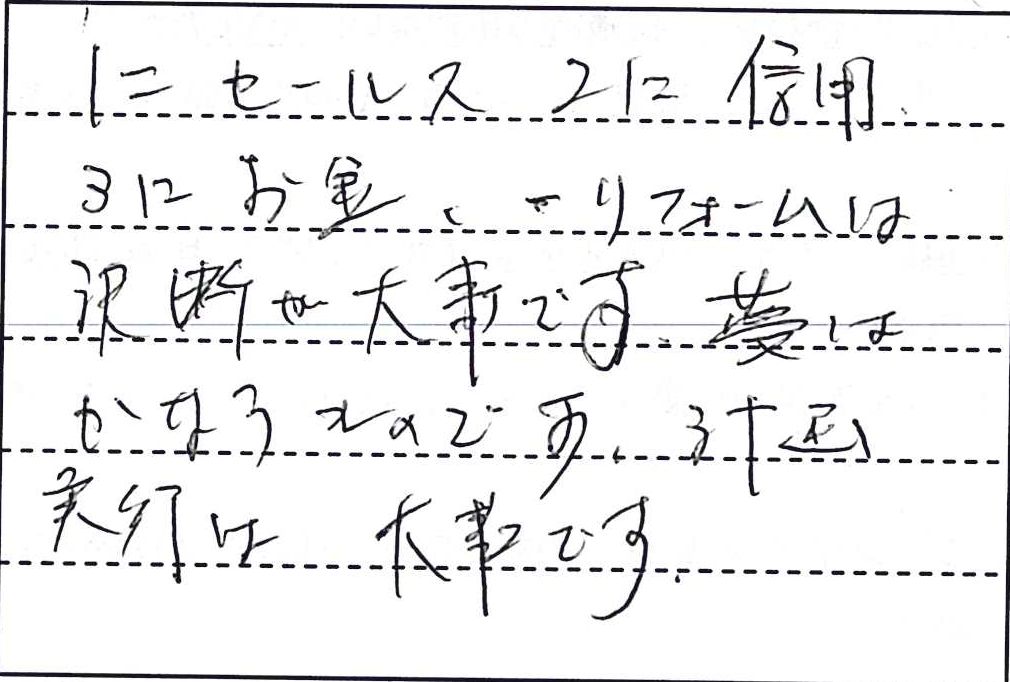 1に セールス 2に 信用、
3に お金、、リフォームは
決断が大事です、夢は
かなうものです、計画
実行は 大事です.